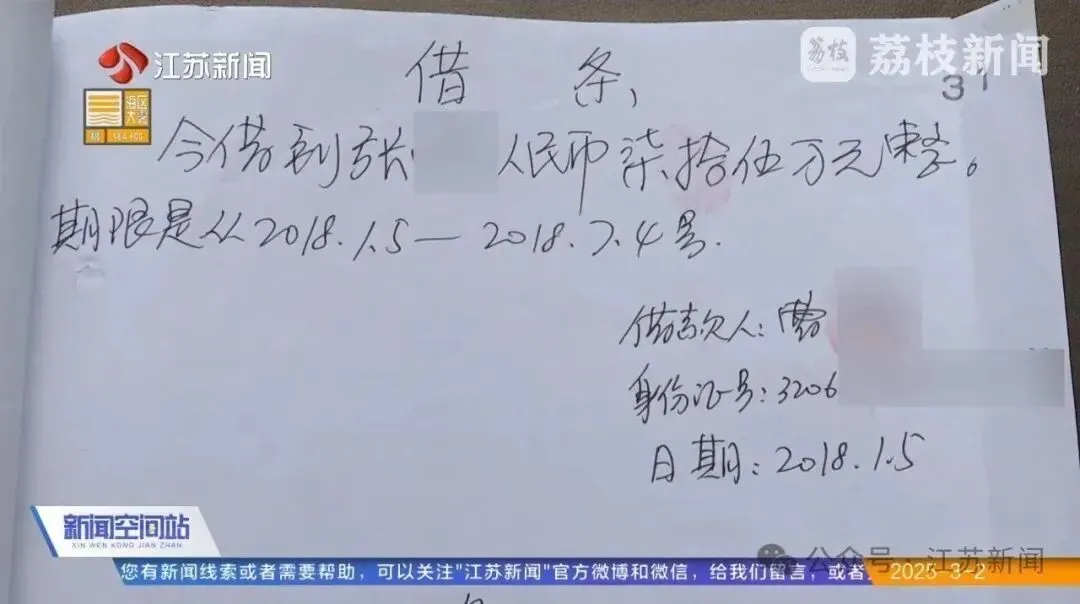 江苏新闻
荔枝新闻
31
借 条
今借到张 人民币柒拾伍万元整。
期限是从2018.1.5—2018.7.4号.
借款人:曹
身份证号:3206
日期:2018.1.5
新闻空间站
XIN WEN KONG JIAN ZHAN
您有新闻线索或者需要帮助,可以关注"江苏新闻"官方微博和微信,给我们留言,或者
2025-3-2
公众号·江苏新闻